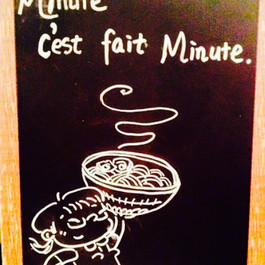 Minute
c'est fait Minute.